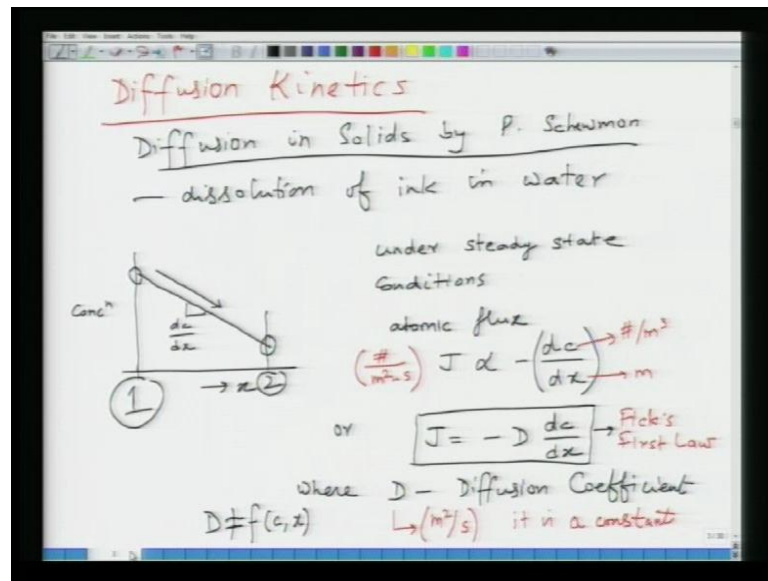 File Edit View Insert Actions Tools Help
Diffusion Kinetics
Diffusion in Solids by P. Schewmon
— dissolution of ink in water
under steady state
Conditions
atomic flux
Concⁿ
dc/dx
→ x
1
2
(#/m²-s) J ∝ -(dc/dx) → #/m³
→ m
or
J = - D dc/dx → Fick's First Law
where D — Diffusion Coefficient
D ≠ f(c, x)
↳ (m²/s) it is a constant